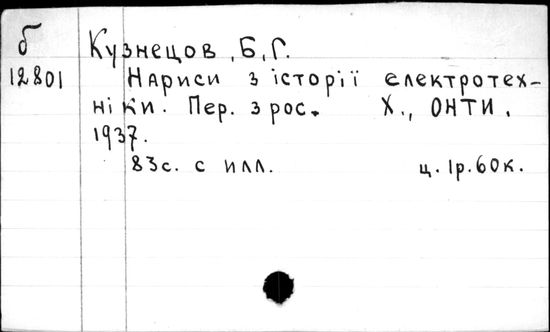 б
12801
Кузнецов, Б, Г.
Нариси з історії електротех-
ніки. Пер. з рос. Х., ОНТИ.
1937.
83с. с илл. ц. 1р. 60к.